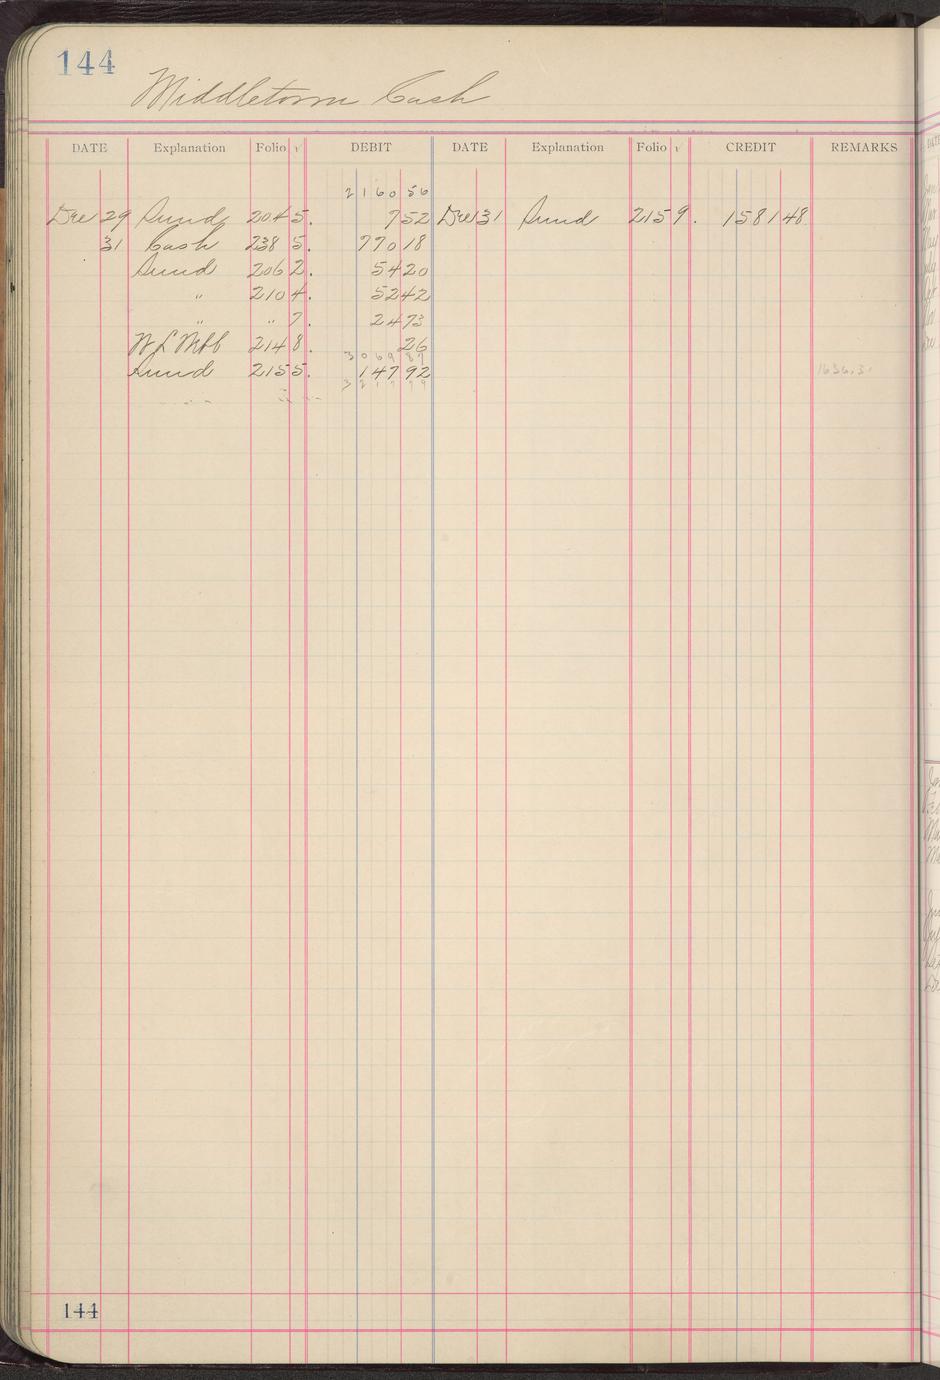 144
Middletown Cash
DATE Explanation Folio √ DEBIT DATE Explanation Folio √ CREDIT REMARKS
2160 56
Dec 29 Sund 204 5. 7 52 Dec 31 Sund 215 9. 1581 48
31 Cash 238 5. 770 18
Sund 206 2. 54 20
" 210 4. 52 42
" " 7. 24 73
214 8. 26
3069 87
Sund 215 5. 147 92 1636.31
144